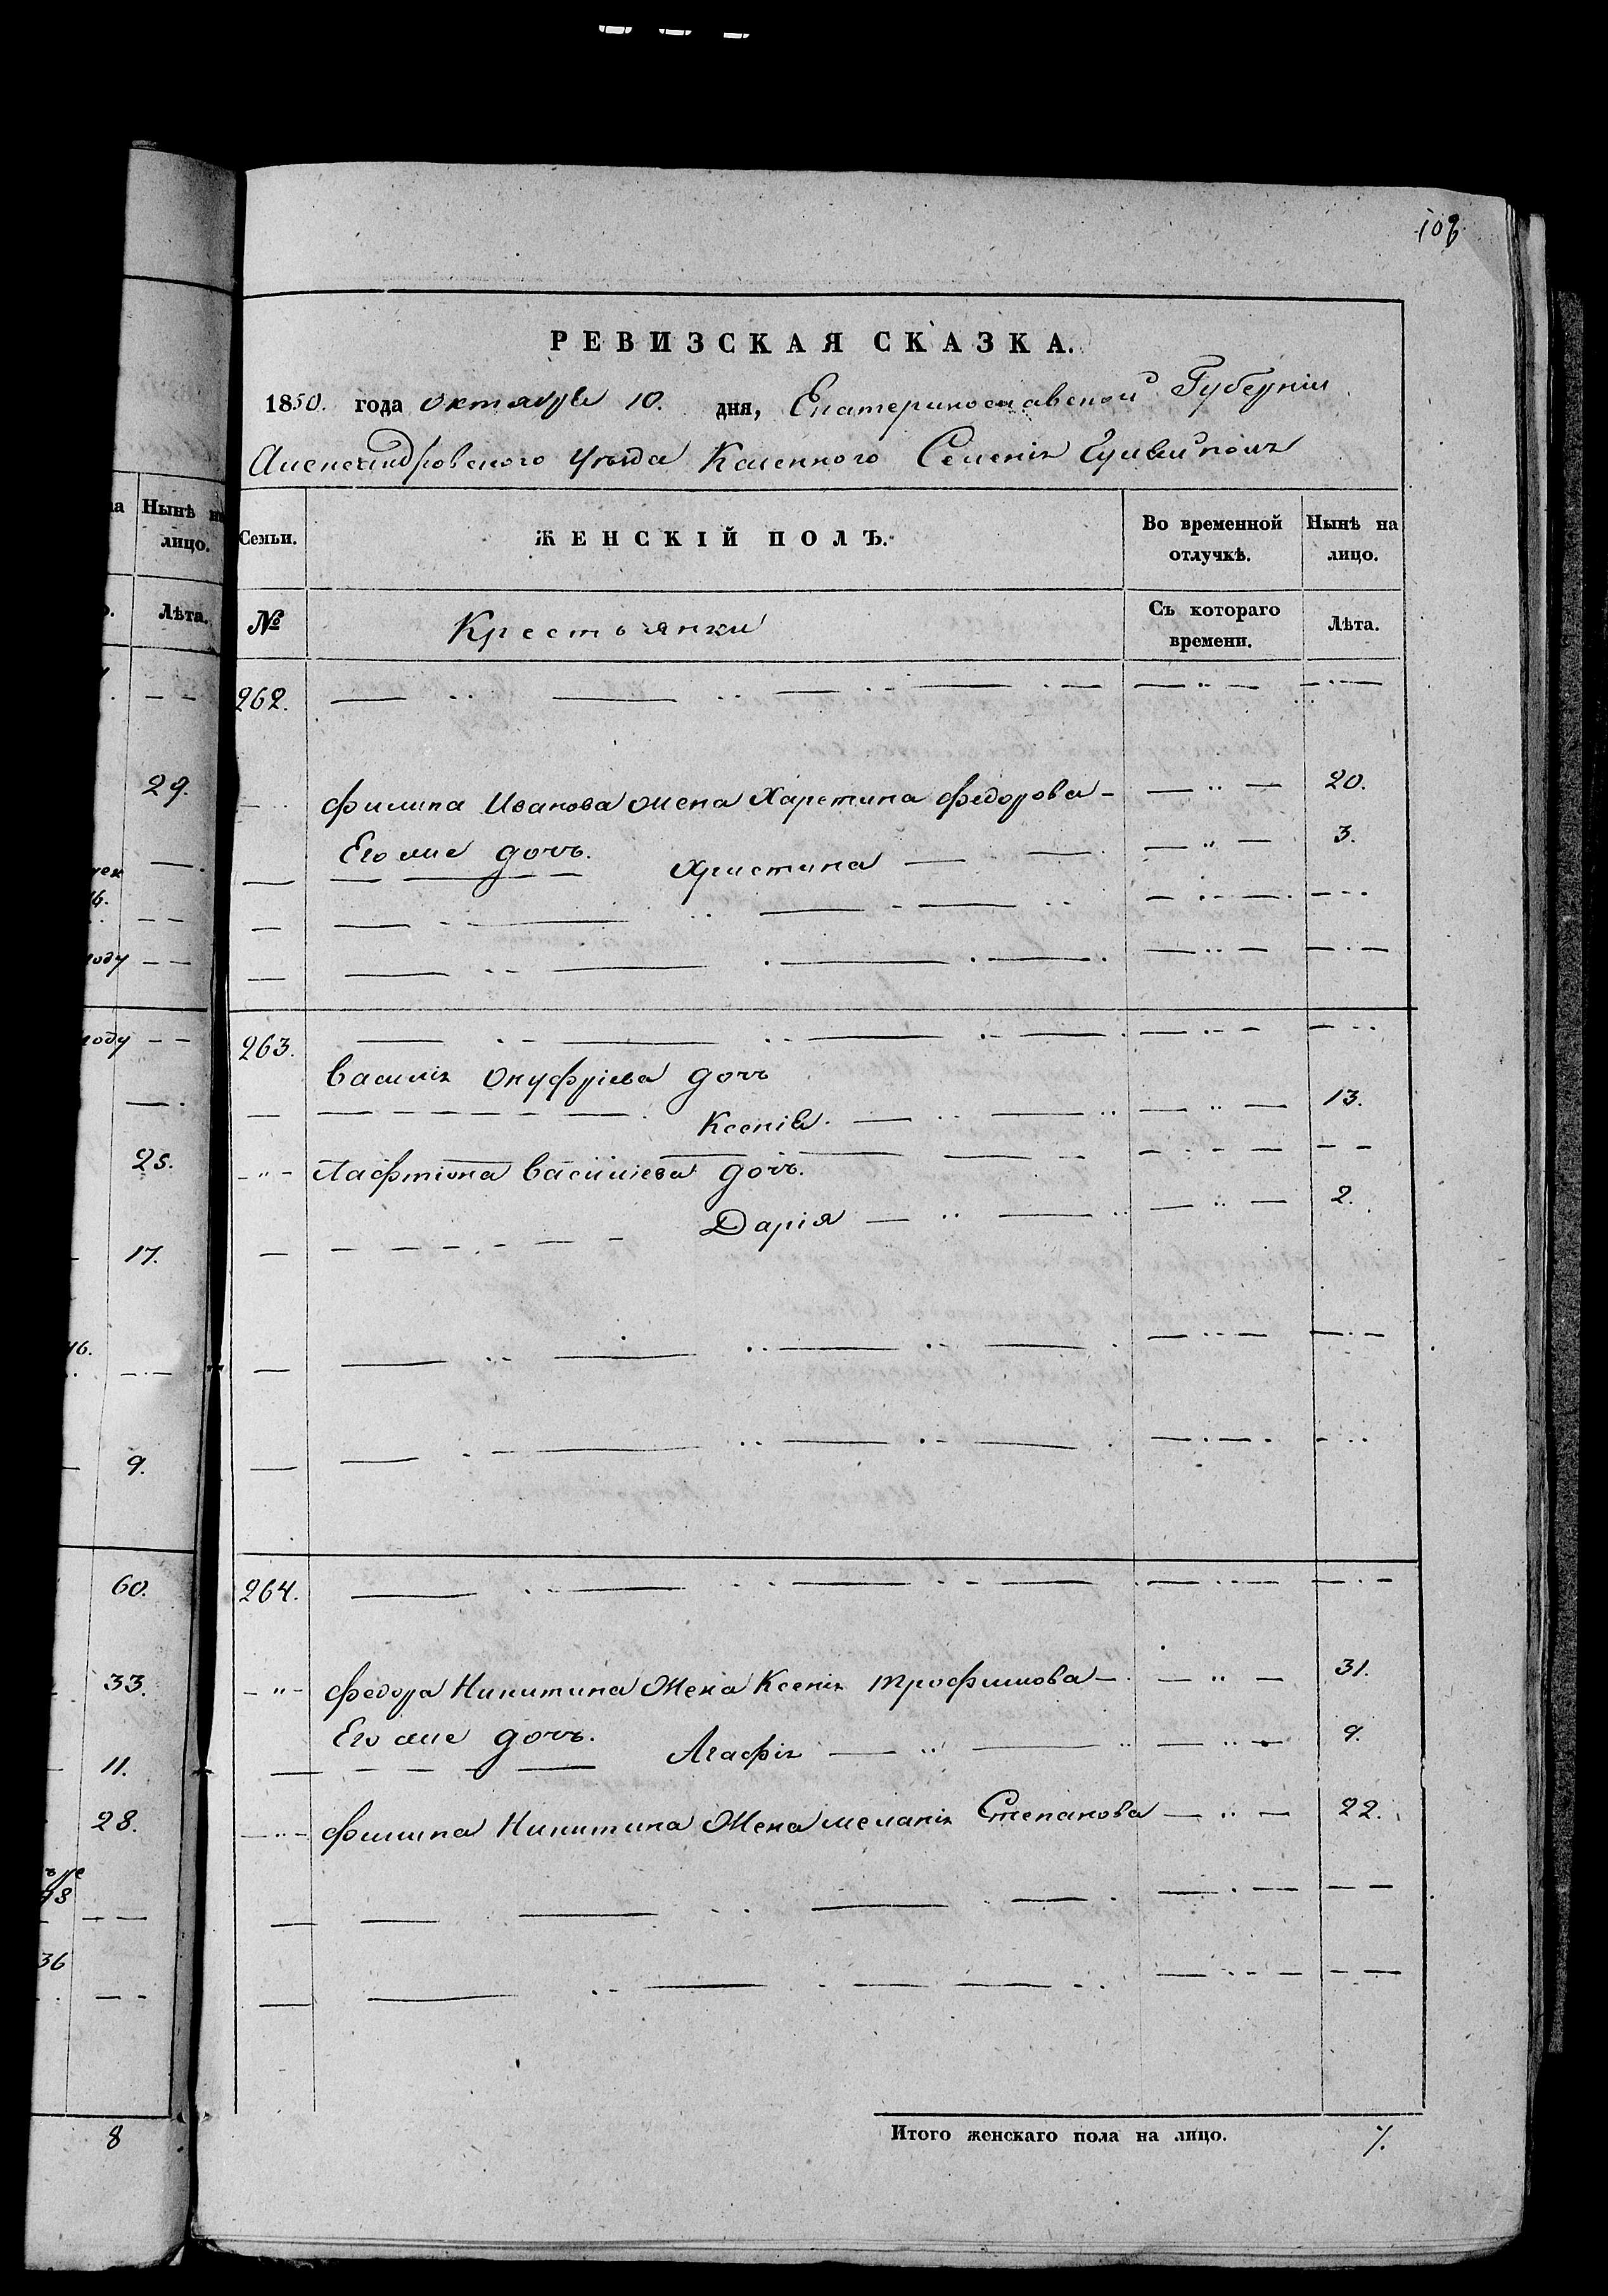 109
РЕВИЗСКАЯ СКАЗКА.
1850. года октября 10. дня, Екатеринославской Губерніи
Александровского Уезда Казенного Селенія Гуляйполя
Семьи.
ЖЕНСКІЙ ПОЛЪ.
Во временной отлучкѣ.
Нынѣ на лицо.
№
Крестьянки
Съ котораго времени.
Лѣта.
262.
Филипа Иванова жена Харетина Федорова 20.
Его же дочь. Христина 3.
263.
Василія Онуфріева дочь
Ксенія. 13.
Лафтіона Василіева дочь.
Дарія 2.
264.
Федора Никитина Жена Ксенія Трофимова 31.
Его же дочь. Агафія 9.
Филипа Никитина Жена меланія Степанова 22.
Итого женскаго пола на лицо. 7.
Нынѣ на лицо.
Лѣта.
29.
году
году
25.
17.
46.
9.
60.
33.
11.
28.
36
8